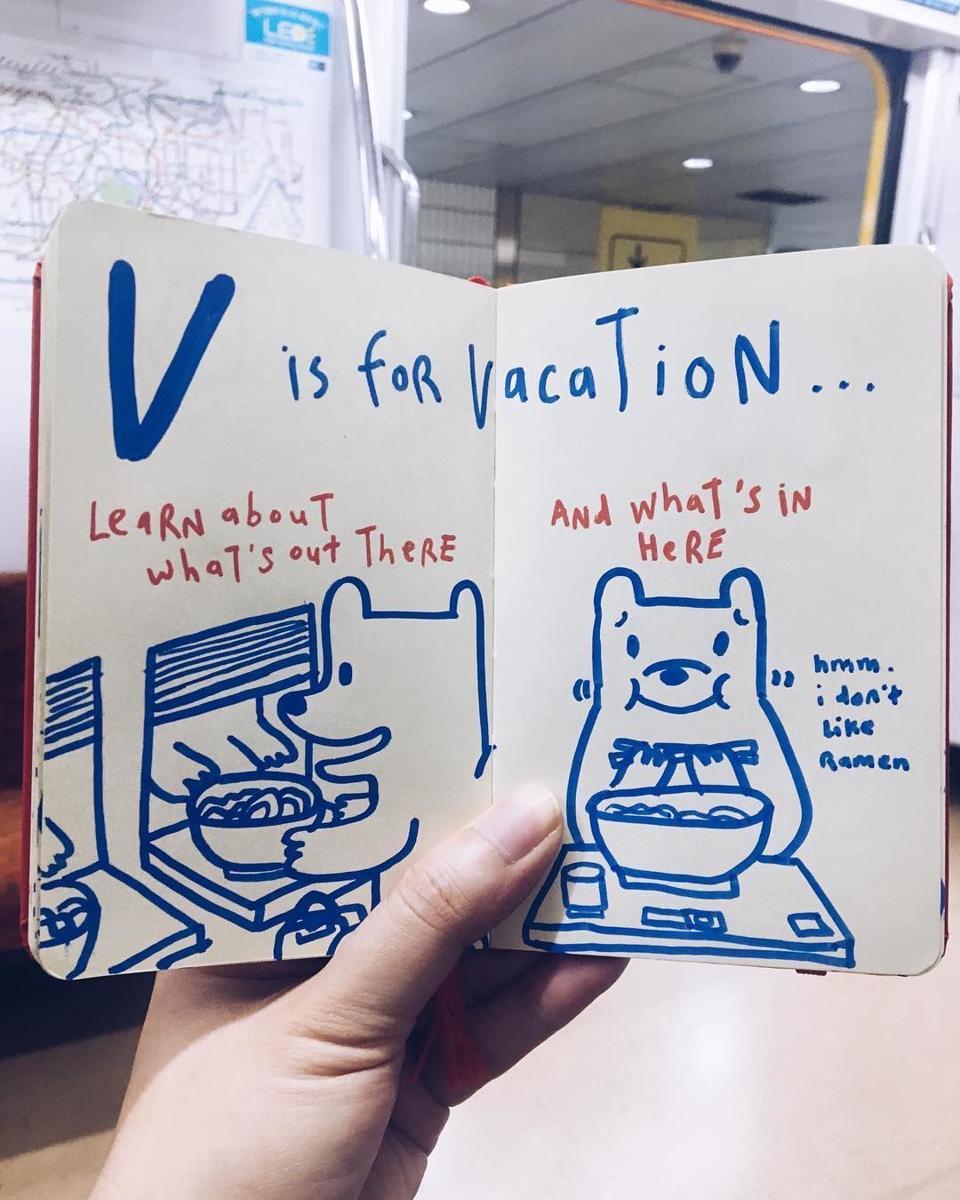 LED
V is for Vacation...
Learn about
what's out There
And what's in
Here
hmm.
i don't
like
Ramen